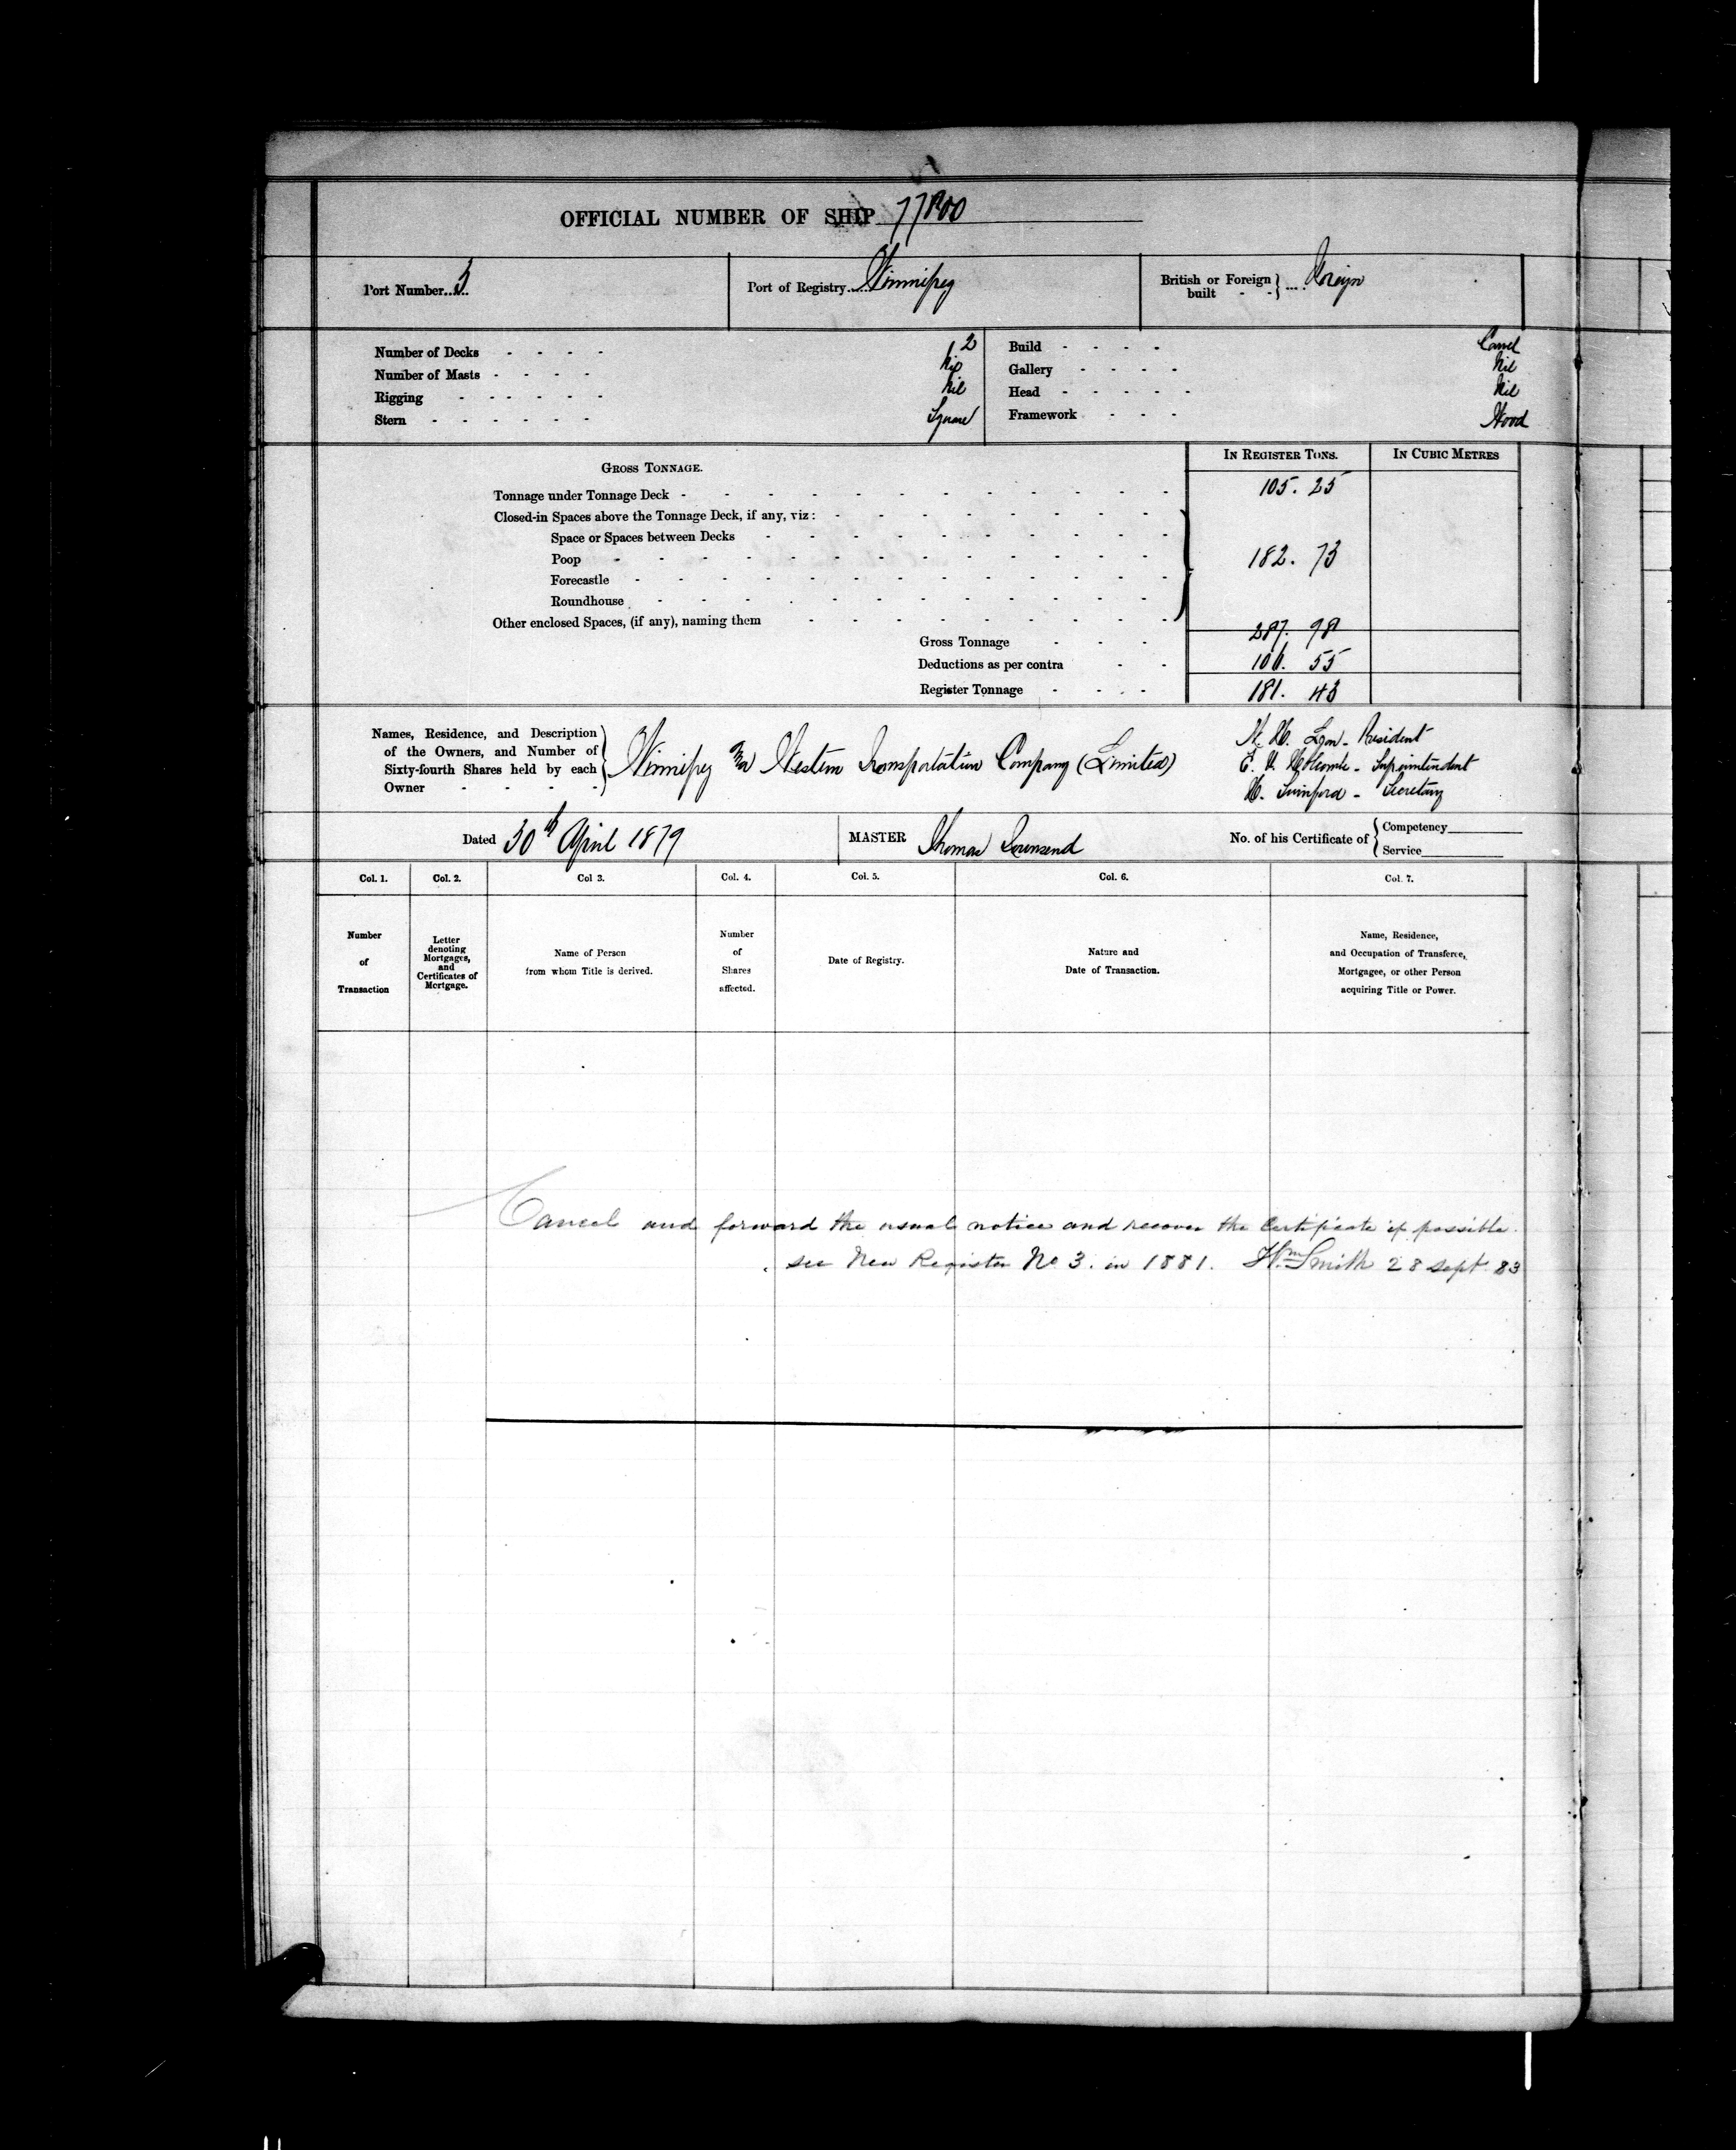 OFFICIAL NUMBER OF SHIP 77800
Port Number 3
Port of Registry Winnipeg
British or Foreign built Foreign
Number of Decks 2
Number of Masts Nil
Rigging Nil
Stern Square
Build Carvel
Gallery Nil
Head Nil
Framework Wood
GROSS TONNAGE.
IN REGISTER TONS.
IN CUBIC METRES
Tonnage under Tonnage Deck 105. 25
Closed-in Spaces above the Tonnage Deck, if any, viz:
Space or Spaces between Decks
Poop 182. 73
Forecastle
Roundhouse
Other enclosed Spaces, (if any), naming them
Gross Tonnage 287. 98
Deductions as per contra 106. 55
Register Tonnage 181. 43
Names, Residence, and Description
of the Owners, and Number of
Sixty-fourth Shares held by each
Owner
Winnipeg and Western Transportation Company (Limited)
Lyon - President
Holcombe - Superintendent
Swinford - Secretary
Dated 30th April 1879
MASTER Thomas Townsend
No. of his Certificate of
Competency
Service
Col. 1.
Col. 2.
Col 3.
Col. 4.
Col. 5.
Col. 6.
Col. 7.
Number
of
Transaction
Letter
denoting
Mortgages,
and
Certificates of
Mortgage.
Name of Person
from whom Title is derived.
Number
of
Shares
affected.
Date of Registry.
Nature and
Date of Transaction.
Name, Residence,
and Occupation of Transferee,
Mortgagee, or other Person
acquiring Title or Power.
Cancel and forward the usual notice and recover the Certificate if possible.
see New Register No 3. in 1881. Wm Smith 28 Sept. 83